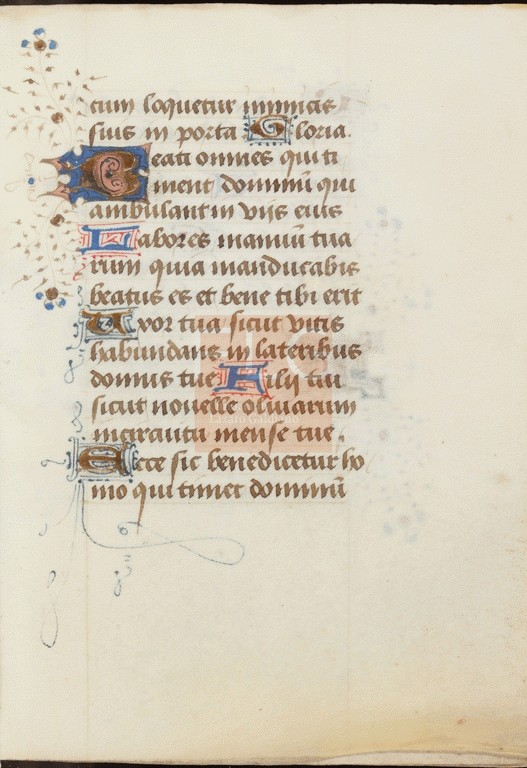 cum loquetur inimicis
suis in porta Gloria.
Beati omnes qui ti
ment dominū qui
ambulant in viis eius
Labores manuū tua
rum quia manducabis
beatus es et bene tibi erit
Uxor tua sicut vitis
habundans in lateribus
domus tue Filii tui
sicut novelle olivarum
in circuitu mense tue.
Ecce sic benedicetur ho
mo qui timet dominū